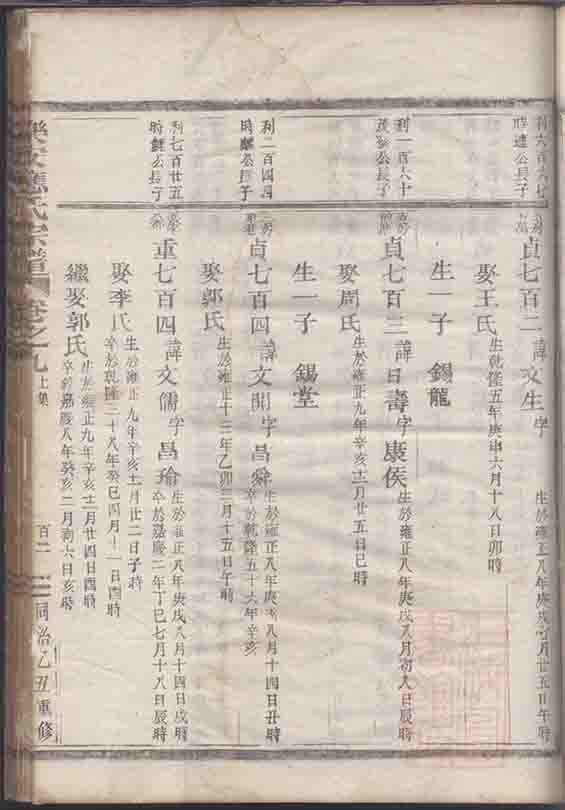 利六百六七
時達公長子
貞七百二 諱文生 字
生於雍正八年庚戌 月廿五日午時
娶王氏
生乾隆五年庚申六月十八日卯時
生一子 錫龍
利一百六十
公長子
貞七百三 諱日壽 字庚侯
生於雍正八年庚戌八月初八日辰時
娶周氏
生於雍正九年辛亥十二月廿五日巳時
生一子 錫堂
利二百四四
時麟公長子
貞七百四 諱文開 字昌舜
生於雍正八年庚戌八月十四日丑時
卒於乾隆五十六年辛亥
娶郭氏
生於雍正十三年乙卯三月十五日午時
利七百廿五
時 公長子
重七百四 諱文儒 字昌瑜
生於雍正八年庚戌八月十四日戌時
卒於嘉慶二年丁巳七月十八日辰時
娶李氏
生於雍正九年辛亥十一月廿二日子時
卒於乾隆三十八年癸巳四月十一日酉時
繼娶郭氏
生於雍正九年辛亥十二月廿四日酉時
卒於嘉慶八年癸亥二月初六日亥時
樂安應氏宗譜 卷之九 上集
百二
同治乙丑重修